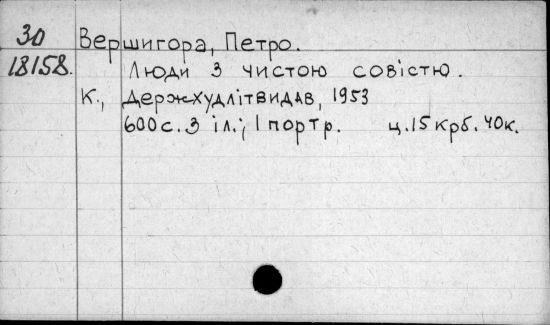 30 Вершигора, Петро.
18158. Люди з чистою совістю.
К., Держхудлітвидав, 1953
600 с. з іл.; 1 портр. ц. 15 крб. 40 к.